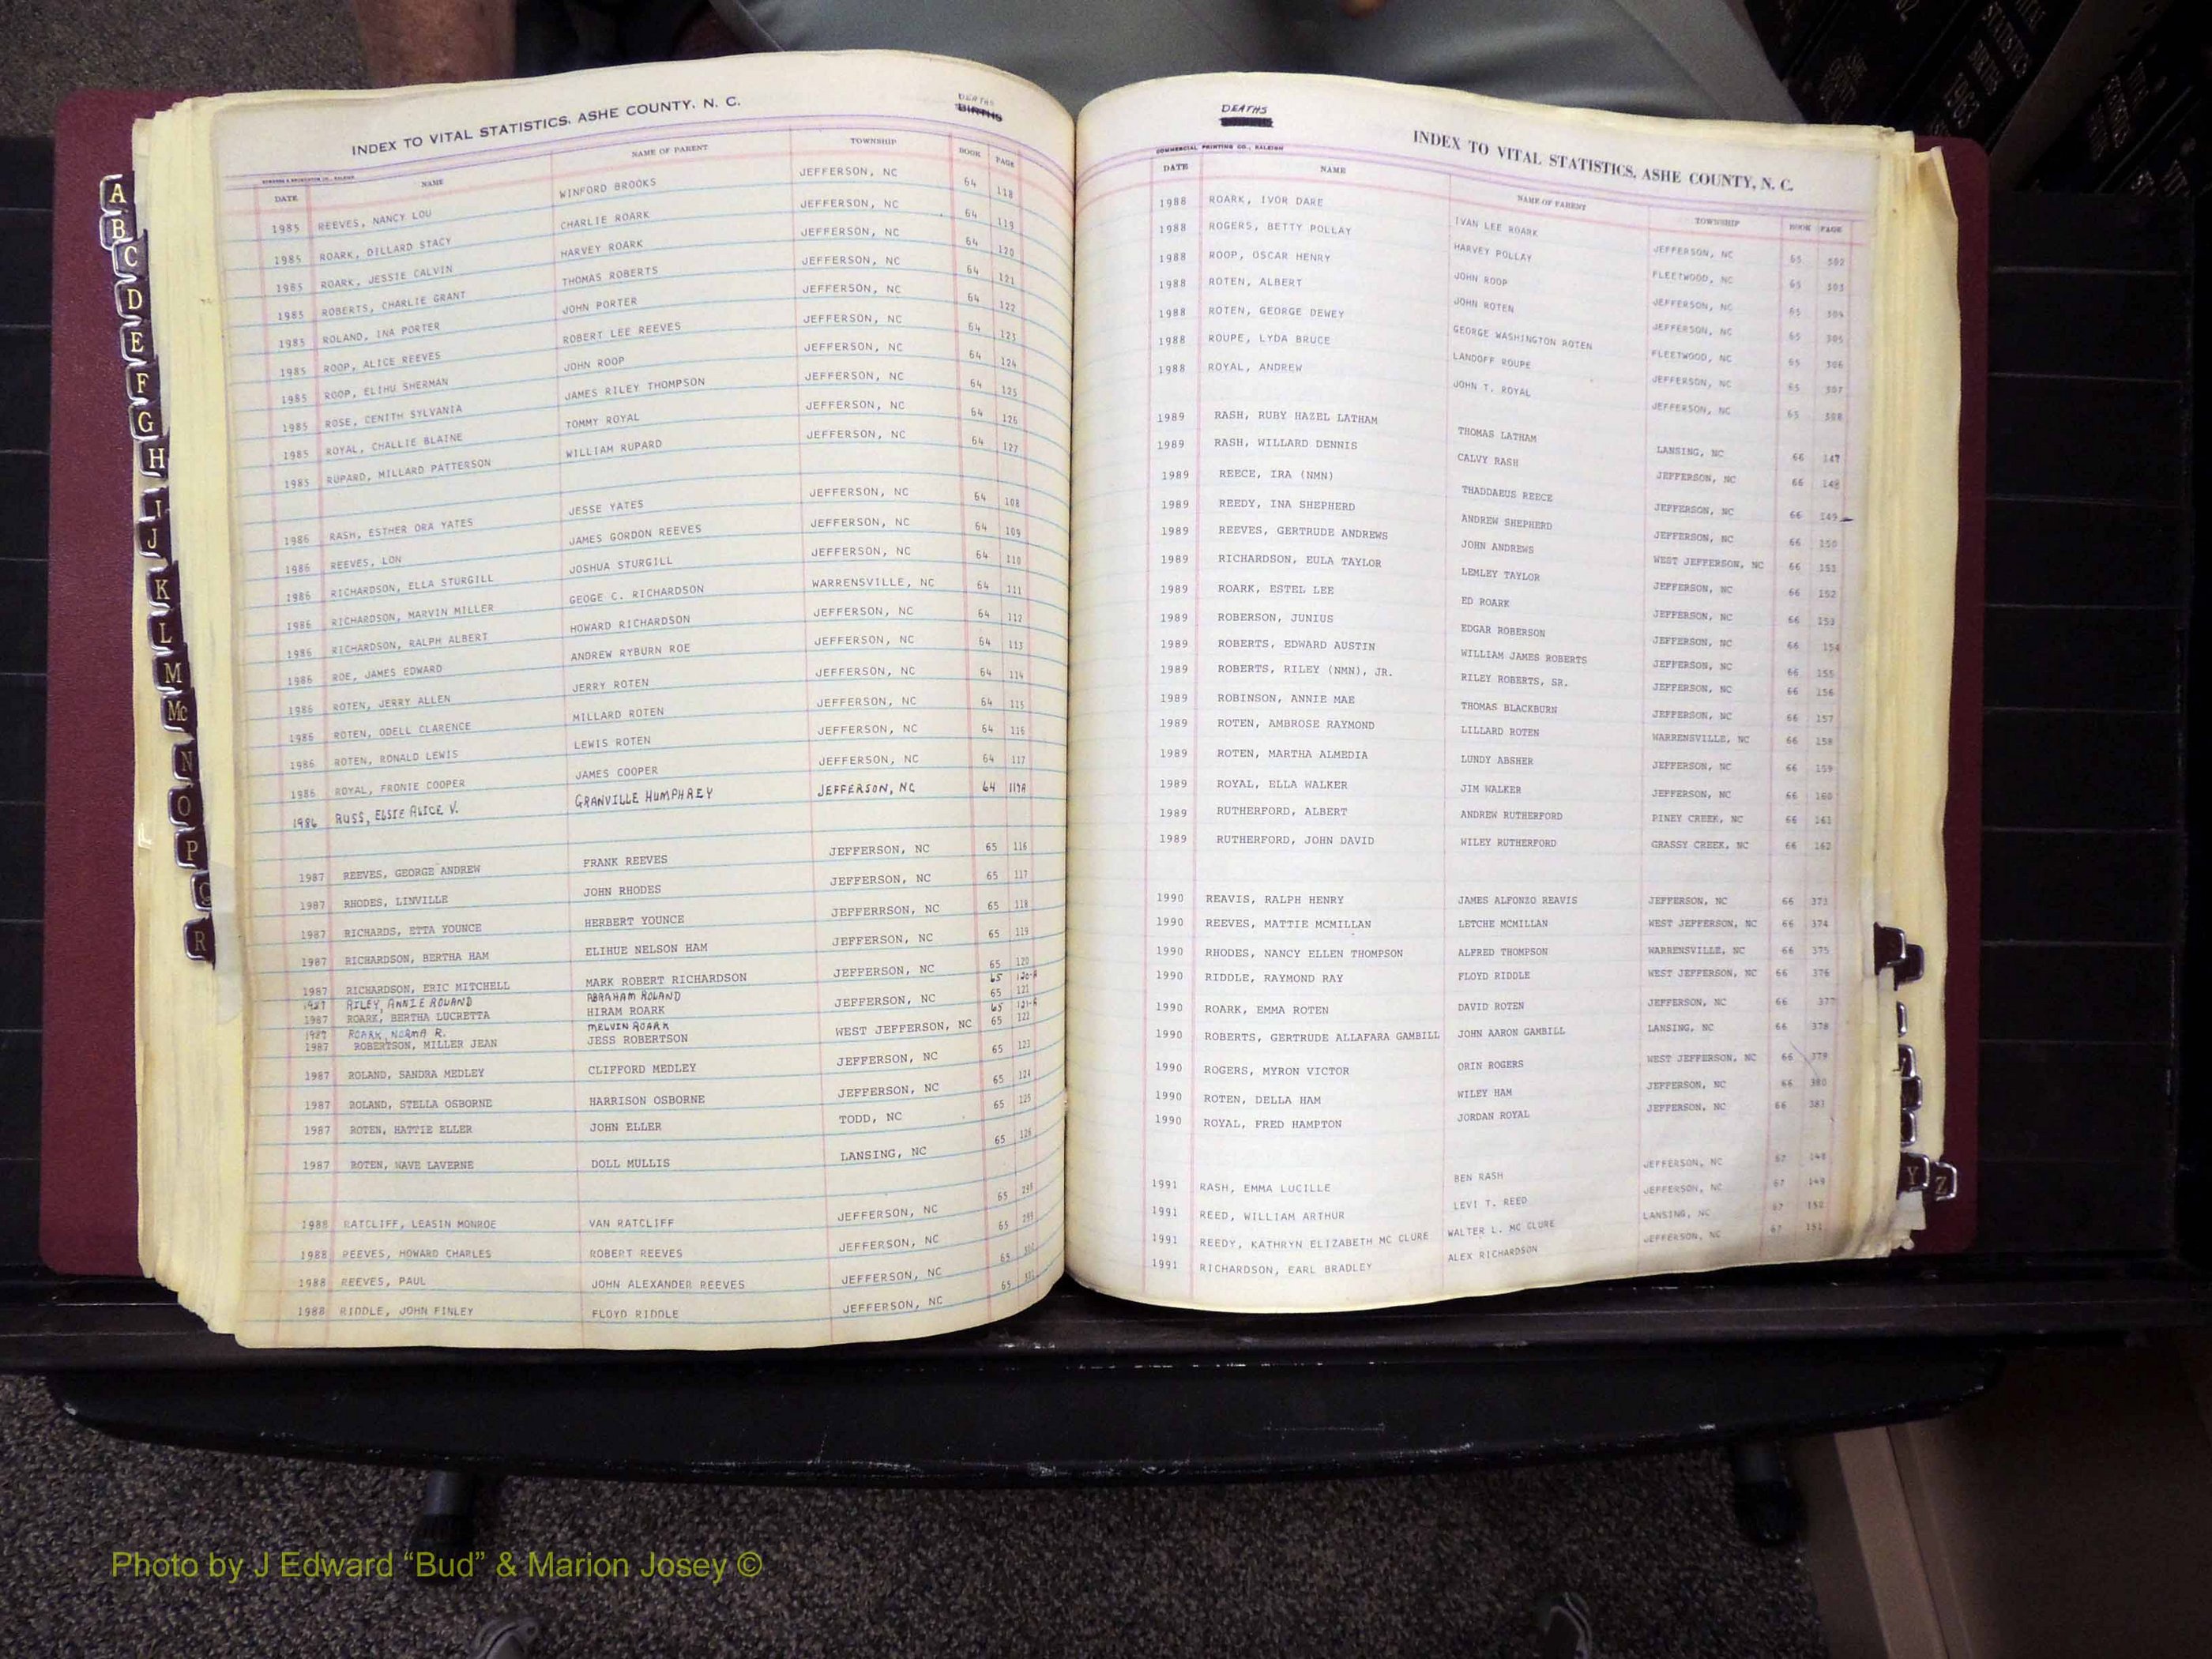 INDEX TO VITAL STATISTICS, ASHE COUNTY, N. C.
DEATHS
BIRTHS
DATE NAME NAME OF PARENT TOWNSHIP BOOK PAGE
1985 REEVES, NANCY LOU WINFORD BROOKS JEFFERSON, NC 64 118
1985 ROARK, DILLARD STACY CHARLIE ROARK JEFFERSON, NC 64 119
1985 ROARK, JESSIE CALVIN HARVEY ROARK JEFFERSON, NC 64 120
1985 ROBERTS, CHARLIE GRANT THOMAS ROBERTS JEFFERSON, NC 64 121
1985 ROLAND, INA PORTER JOHN PORTER JEFFERSON, NC 64 122
1985 ROOP, ALICE REEVES ROBERT LEE REEVES JEFFERSON, NC 64 123
1985 ROOP, ELIHU SHERMAN JOHN ROOP JEFFERSON, NC 64 124
1985 ROSE, CENITH SYLVANIA JAMES RILEY THOMPSON JEFFERSON, NC 64 125
1985 ROYAL, CHALLIE BLAINE TOMMY ROYAL JEFFERSON, NC 64 126
1985 RUPARD, MILLARD PATTERSON WILLIAM RUPARD JEFFERSON, NC 64 127
1986 RASH, ESTHER ORA YATES JESSE YATES JEFFERSON, NC 64 108
1986 REEVES, LON JAMES GORDON REEVES JEFFERSON, NC 64 109
1986 RICHARDSON, ELLA STURGILL JOSHUA STURGILL JEFFERSON, NC 64 110
1986 RICHARDSON, MARVIN MILLER GEOGE C. RICHARDSON WARRENSVILLE, NC 64 111
1986 RICHARDSON, RALPH ALBERT HOWARD RICHARDSON JEFFERSON, NC 64 112
1986 ROE, JAMES EDWARD ANDREW RYBURN ROE JEFFERSON, NC 64 113
1986 ROTEN, JERRY ALLEN JERRY ROTEN JEFFERSON, NC 64 114
1986 ROTEN, ODELL CLARENCE MILLARD ROTEN JEFFERSON, NC 64 115
1986 ROTEN, RONALD LEWIS LEWIS ROTEN JEFFERSON, NC 64 116
1986 ROYAL, FRONIE COOPER JAMES COOPER JEFFERSON, NC 64 117
1986 RUSS, ELSIE ALICE V. GRANVILLE HUMPHREY JEFFERSON, NC 64 117A
1987 REEVES, GEORGE ANDREW FRANK REEVES JEFFERSON, NC 65 116
1987 RHODES, LINVILLE JOHN RHODES JEFFERSON, NC 65 117
1987 RICHARDS, ETTA YOUNCE HERBERT YOUNCE JEFFERRSON, NC 65 118
1987 RICHARDSON, BERTHA HAM ELIHUE NELSON HAM JEFFERSON, NC 65 119
1987 RICHARDSON, ERIC MITCHELL MARK ROBERT RICHARDSON JEFFERSON, NC 65 120
1987 RILEY, ANNIE ROLAND ABRAHAM ROLAND 65 120-A
1987 ROARK, BERTHA LUCRETTA HIRAM ROARK JEFFERSON, NC 65 121
1987 ROARK, NORMA R. MELVIN ROARK 65 121-A
1987 ROBERTSON, MILLER JEAN JESS ROBERTSON WEST JEFFERSON, NC 65 122
1987 ROLAND, SANDRA MEDLEY CLIFFORD MEDLEY JEFFERSON, NC 65 123
1987 ROLAND, STELLA OSBORNE HARRISON OSBORNE JEFFERSON, NC 65 124
1987 ROTEN, HATTIE ELLER JOHN ELLER TODD, NC 65 125
1987 ROTEN, WAVE LAVERNE DOLL MULLIS LANSING, NC 65 126
1988 RATCLIFF, LEASIN MONROE VAN RATCLIFF JEFFERSON, NC 65 298
1988 REEVES, HOWARD CHARLES ROBERT REEVES JEFFERSON, NC 65 299
1988 REEVES, PAUL JOHN ALEXANDER REEVES JEFFERSON, NC 65
1988 RIDDLE, JOHN FINLEY FLOYD RIDDLE JEFFERSON, NC 65
A
B
C
D
E
F
G
H
I
J
K
L
M
Mc
N
O
P
R
DEATHS
INDEX TO VITAL STATISTICS, ASHE COUNTY, N. C.
COMMERCIAL PRINTING CO., RALEIGH
DATE NAME NAME OF PARENT TOWNSHIP BOOK PAGE
1988 ROARK, IVOR DARE IVAN LEE ROARK JEFFERSON, NC 65 302
1988 ROGERS, BETTY POLLAY HARVEY POLLAY FLEETWOOD, NC 65 303
1988 ROOP, OSCAR HENRY JOHN ROOP JEFFERSON, NC 65 304
1988 ROTEN, ALBERT JOHN ROTEN JEFFERSON, NC 65 305
1988 ROTEN, GEORGE DEWEY GEORGE WASHINGTON ROTEN FLEETWOOD, NC 65 306
1988 ROUPE, LYDA BRUCE LANDOFF ROUPE JEFFERSON, NC 65 307
1988 ROYAL, ANDREW JOHN T. ROYAL JEFFERSON, NC 65 308
1989 RASH, RUBY HAZEL LATHAM THOMAS LATHAM LANSING, NC 66 147
1989 RASH, WILLARD DENNIS CALVY RASH JEFFERSON, NC 66 148
1989 REECE, IRA (NMN) THADDAEUS REECE JEFFERSON, NC 66 149
1989 REEDY, INA SHEPHERD ANDREW SHEPHERD JEFFERSON, NC 66 150
1989 REEVES, GERTRUDE ANDREWS JOHN ANDREWS WEST JEFFERSON, NC 66 151
1989 RICHARDSON, EULA TAYLOR LEMLEY TAYLOR JEFFERSON, NC 66 152
1989 ROARK, ESTEL LEE ED ROARK JEFFERSON, NC 66 153
1989 ROBERSON, JUNIUS EDGAR ROBERSON JEFFERSON, NC 66 154
1989 ROBERTS, EDWARD AUSTIN WILLIAM JAMES ROBERTS JEFFERSON, NC 66 155
1989 ROBERTS, RILEY (NMN), JR. RILEY ROBERTS, SR. JEFFERSON, NC 66 156
1989 ROBINSON, ANNIE MAE THOMAS BLACKBURN JEFFERSON, NC 66 157
1989 ROTEN, AMBROSE RAYMOND LILLARD ROTEN WARRENSVILLE, NC 66 158
1989 ROTEN, MARTHA ALMEDIA LUNDY ABSHER JEFFERSON, NC 66 159
1989 ROYAL, ELLA WALKER JIM WALKER JEFFERSON, NC 66 160
1989 RUTHERFORD, ALBERT ANDREW RUTHERFORD PINEY CREEK, NC 66 161
1989 RUTHERFORD, JOHN DAVID WILEY RUTHERFORD GRASSY CREEK, NC 66 162
1990 REAVIS, RALPH HENRY JAMES ALFONZO REAVIS JEFFERSON, NC 66 373
1990 REEVES, MATTIE MCMILLAN LETCHE MCMILLAN WEST JEFFERSON, NC 66 374
1990 RHODES, NANCY ELLEN THOMPSON ALFRED THOMPSON WARRENSVILLE, NC 66 375
1990 RIDDLE, RAYMOND RAY FLOYD RIDDLE WEST JEFFERSON, NC 66 376
1990 ROARK, EMMA ROTEN DAVID ROTEN JEFFERSON, NC 66 377
1990 ROBERTS, GERTRUDE ALLAFARA GAMBILL JOHN AARON GAMBILL LANSING, NC 66 378
1990 ROGERS, MYRON VICTOR ORIN ROGERS WEST JEFFERSON, NC 66 379
1990 ROTEN, DELLA HAM WILEY HAM JEFFERSON, NC 66 380
1990 ROYAL, FRED HAMPTON JORDAN ROYAL JEFFERSON, NC 66 381
1991 RASH, EMMA LUCILLE BEN RASH JEFFERSON, NC 67 148
1991 REED, WILLIAM ARTHUR LEVI T. REED JEFFERSON, NC 67 149
1991 REEDY, KATHRYN ELIZABETH MC CLURE WALTER L. MC CLURE LANSING, NC 67 150
1991 RICHARDSON, EARL BRADLEY ALEX RICHARDSON JEFFERSON, NC 67 151
Y
Z
Photo by J Edward “Bud” & Marion Josey ©